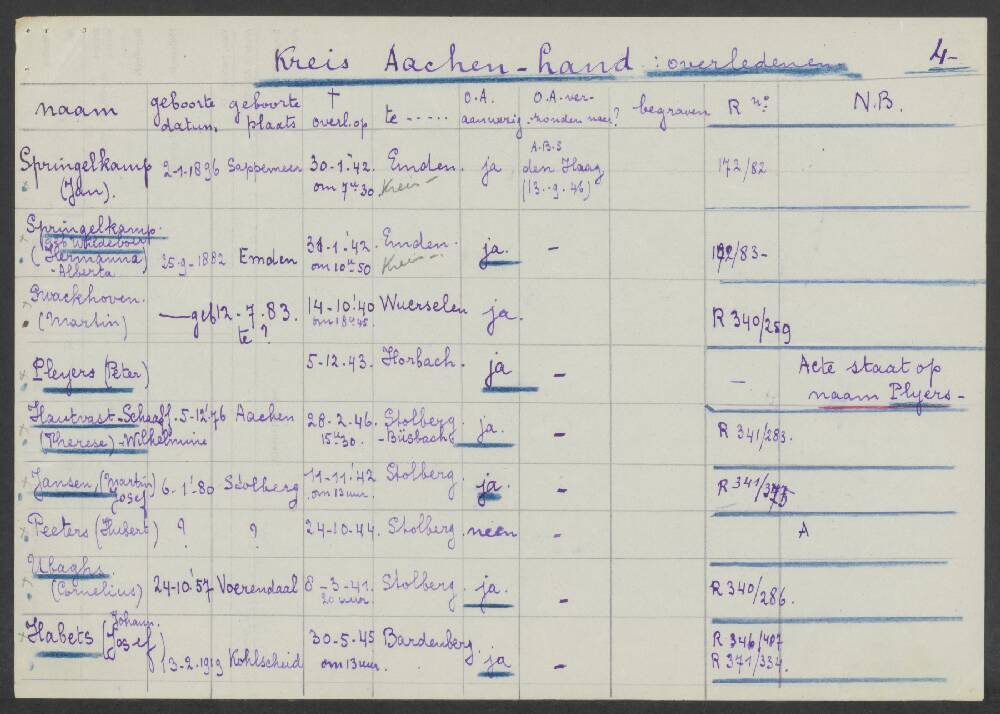 Kreis Aachen-Land : overledenen 4-
naam geboorte datum. geboorte plaats † overl. op te ..... O.A. aanwezig. O.A. ver-zonden naar? begraven R no. N.B.
Springelkamp 2-1-1896 Sappemeer 30-1-'42. Emden. ja A.B.S den Haag 172/82
(Jan). om 7 u 30. Kreis- (13.-9.46)
Springelkamp.
geb Wildeboer
(Hermanna 25-9-1882 Emden 31-1-'42. Emden. ja. - 172/83-
-Alberta om 10 u 50 Kreis-
(Martin) geb 12-7-83. 14-10-'40 Wuerselen ja. R 340/259
te? om 18 u 45.
Pleyers (Peter) 5-12-43. Horbach. ja - - Acte staat op
naam Plyers-
Hautvast-Schaaff. 5-12-'76 Aachen 28-2-46. Stolberg. ja. - R 341/283.
(Therese)-Wilhelmine 15 u 30. -Büsbach
Jansen, (Martin 6-1-'80 Stolberg 11-11-'42 Stolberg. ja. - R 341/
Josef) om 13 uur.
Peeters (Hubert) ? ? 24-10-44. Stolberg. neen - A
Ubaghs.
(Cornelius) 24-10-'57 Voerendaal 8-3-41. Stolberg. ja. - R 340/286.
20 uur.
Habets (Johann. Josef) 13-2-1919 Kohlscheid 30-5-45 Bardenberg. ja - R 346/407
om 13 uur. R 371/334.